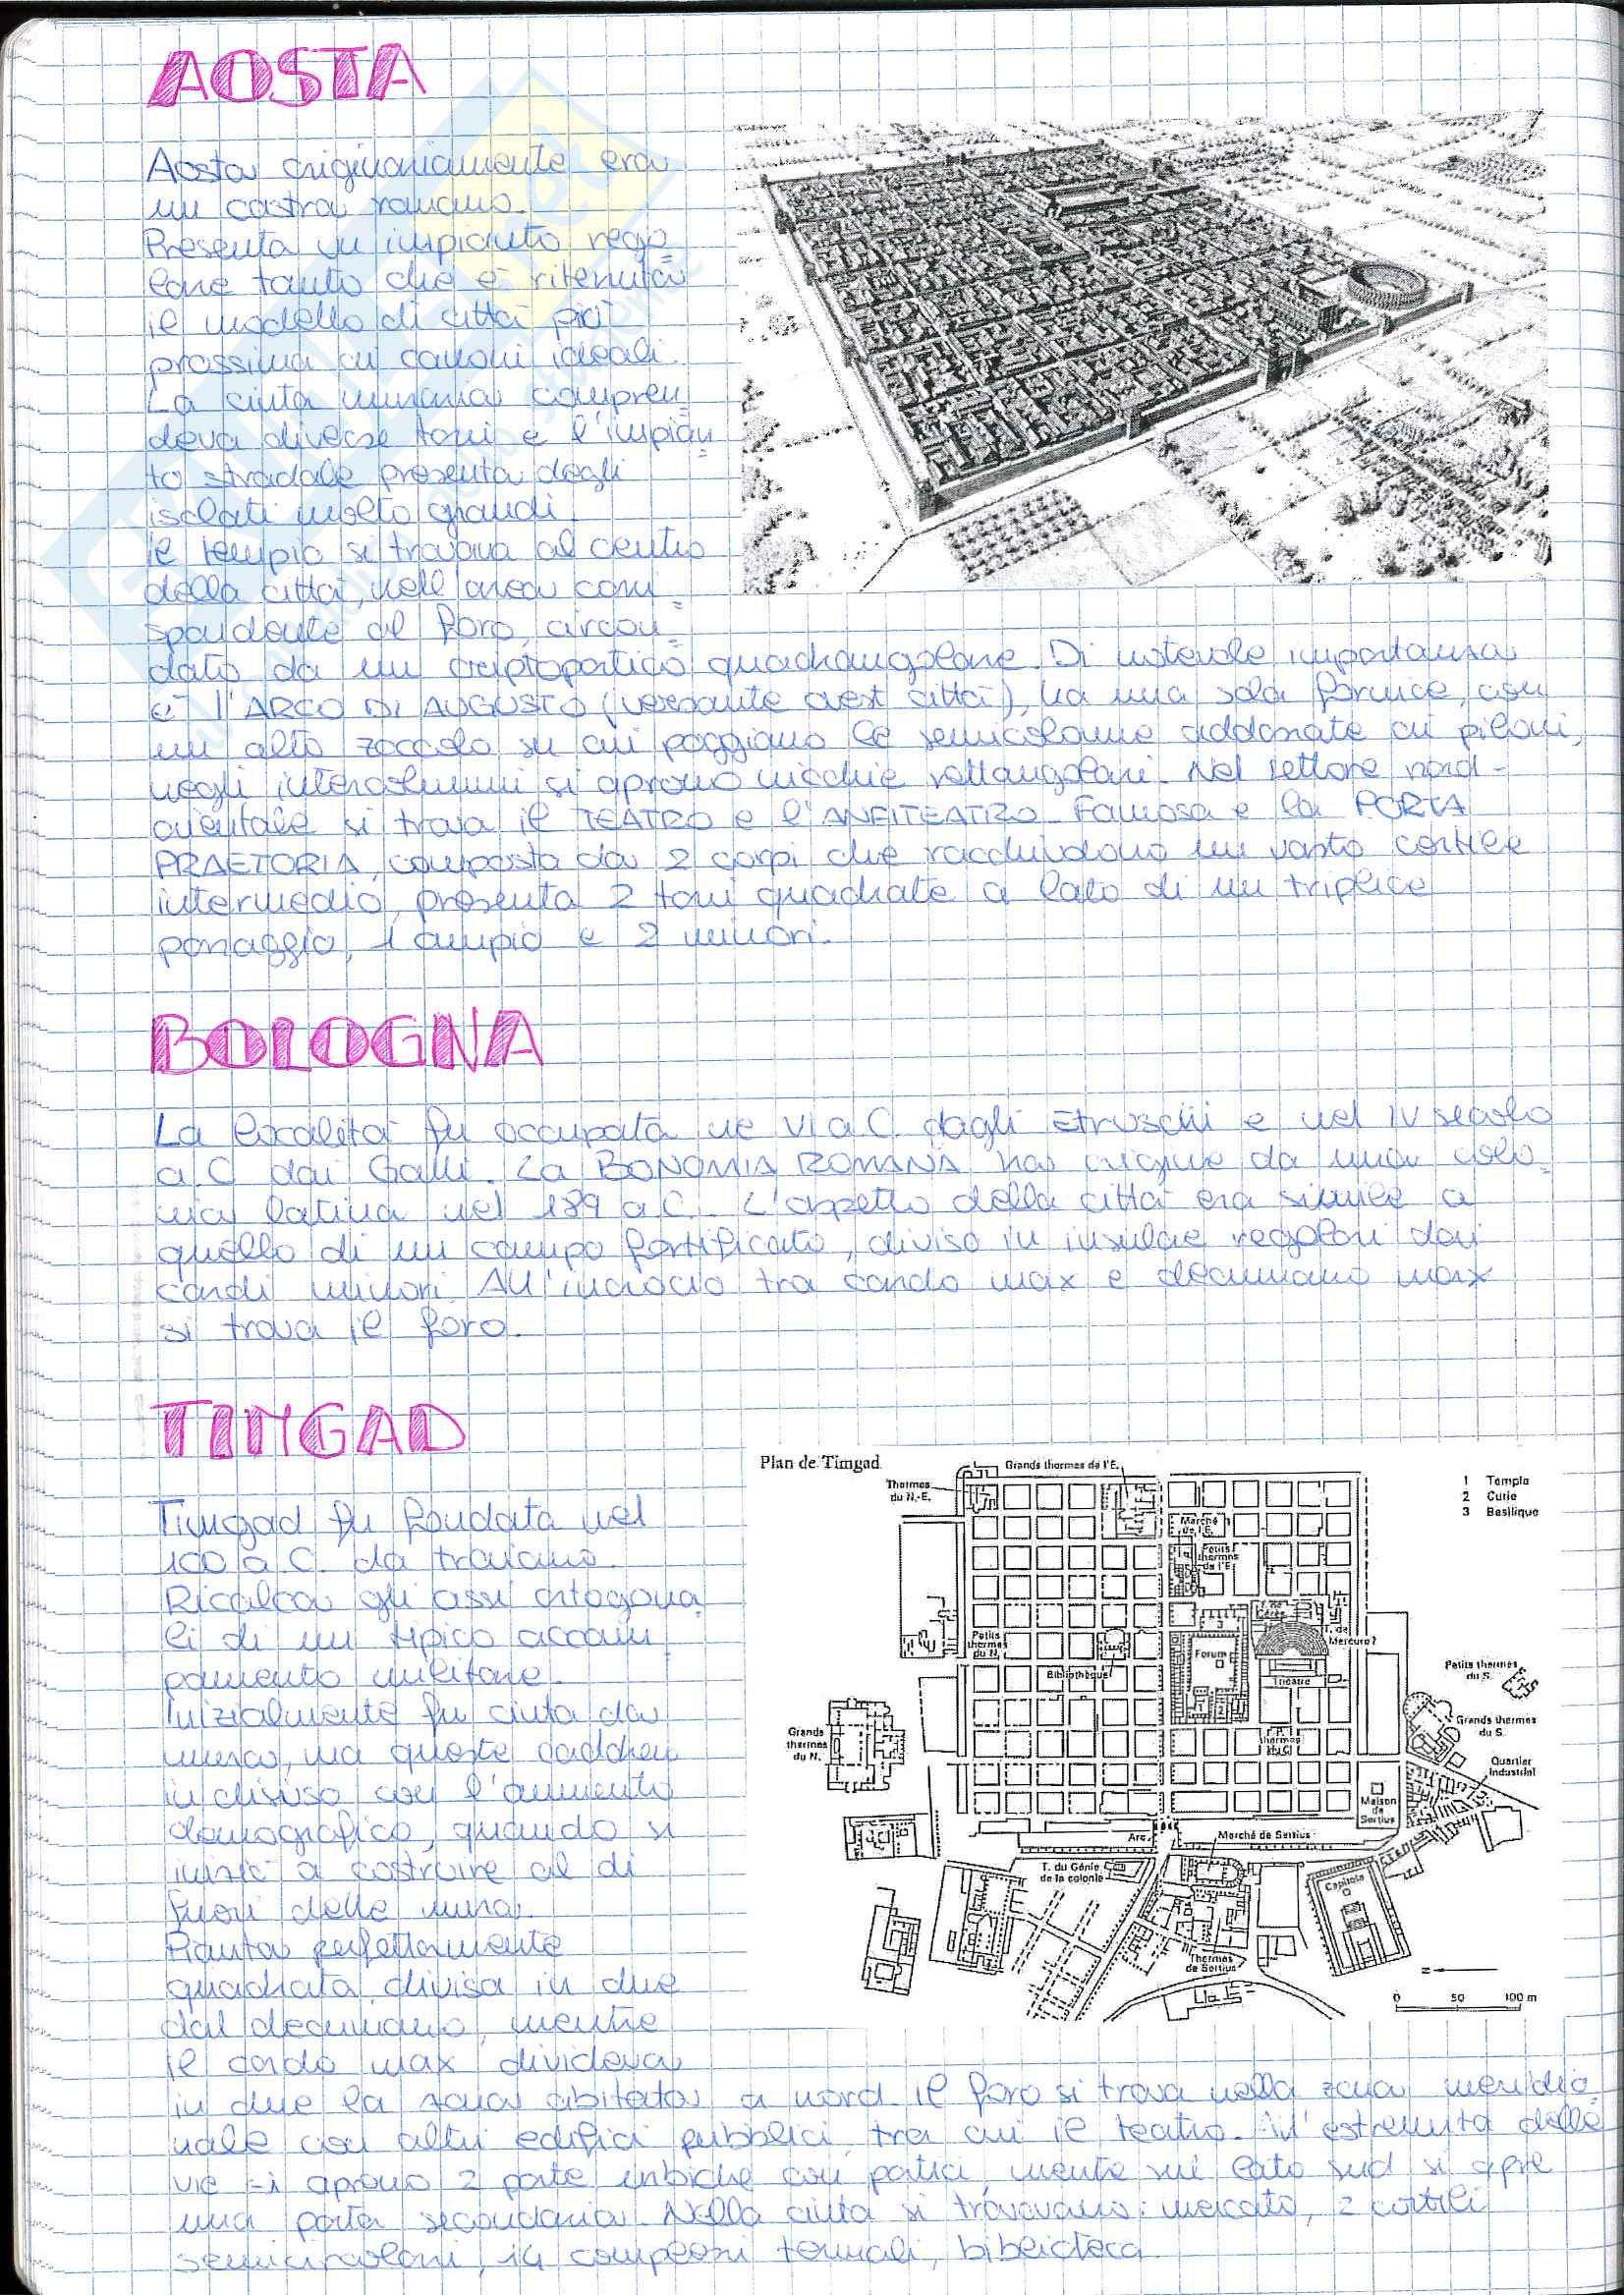 AOSTA
Aosta originariamente era
un castra romano.
Presenta un impianto rego=
lare tanto che è ritenuta
il modello di città più
prossima ai canoni ideali.
La cinta muraria compren=
deva diverse torri e l'impian=
to stradale presenta degli
isolati molto grandi
il tempio si trovava al centro
della città, nell'area corri=
spondente al foro, circon=
dato da un criptoportico quadrangolare. Di notevole importanza
è l'ARCO DI AUGUSTO (versante ovest città), ha una sola fornice, con
un alto zoccolo su cui poggiano le semicolonne addossate ai piloni,
negli intercolumni si aprono nicchie rettangolari. Nel settore nord-
orientale si trova il TEATRO e l'ANFITEATRO. Famosa è la PORTA
PRAETORIA, composta da 2 corpi che racchiudono un vasto cortile
intermedio, presenta 2 torri quadrate a lato di un triplice
passaggio, 1 ampio e 2 minori.
BOLOGNA
La località fu occupata nel VI a.C. dagli Etruschi e nel IV secolo
a.C dai Galli. La BONOMIA ROMANA ha origine da una colo=
nia latina nel 189 a.C. L'aspetto della città era simile a
quello di un campo fortificato, diviso in insulae regolari dai
cardi minori. All'incrocio tra cardo max e decumano max
si trova il foro.
TIMGAD
Timgad fu fondata nel
100 a.C. da traiano.
Ricalca gli assi ortogona
li di un tipico accam
pamento militare.
Inizialmente fu cinta da
mura, ma queste caddero
in disuso con l'aumento
demografico, quando si
iniziò a costruire al di
fuori delle mura.
Pianta perfettamente
quadrata, divisa in due
dal decumano, mentre
il cardo max divideva
in due la zona abitata a nord. il foro si trova nella zona meridio
nale con altri edifici pubblici, tra cui il teatro. All'estremità delle
vie si aprono 2 porte urbiche con portici, mentre sul lato sud si apre
una porta secondaria. Nella cinta si trovavano: mercato, 2 cortili
semicircolari, 14 complessi termali, biblioteca
Plan de Timgad
Grands thermes de l'E.
Thermes
du N.-E.
1 Temple
2 Curie
3 Basilique
Marché
de l'E.
Petits
thermes
de l'E
T. de
Mercure?
Petits
thermes
du N.
Bibliothèque
Forum
Théâtre
Petits thermes
du S.
Grands thermes
du S.
Grands
thermes
du N.
Quartier
Industriel
Maison
de
Sertius
Arc
Marché de Sertius
T. du Génie
de la colonie
Capitole
Thermes
de Sertius
z
0 50 100 m